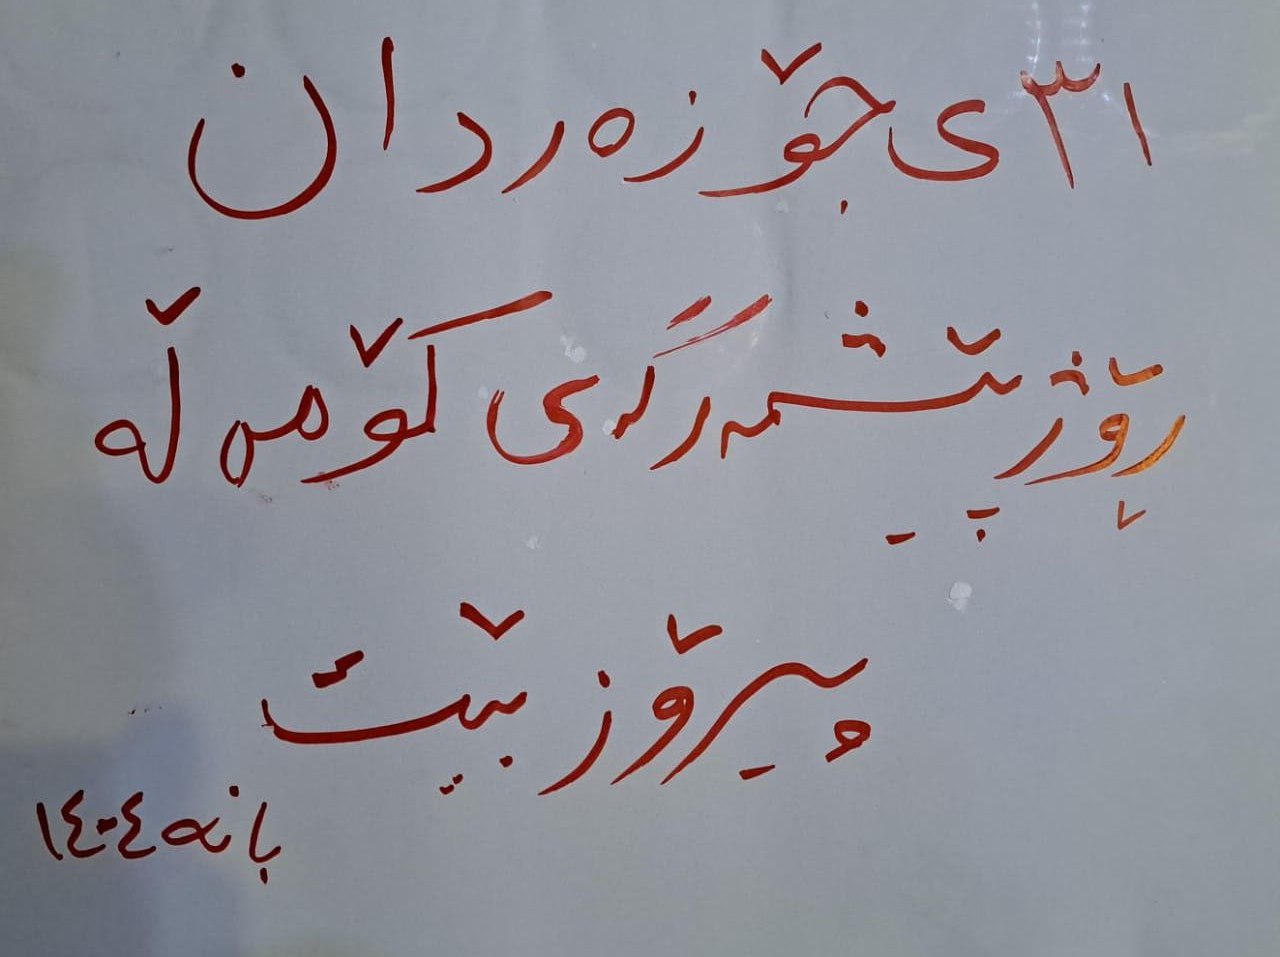 ٣١ی جۆزەردان
ڕۆژ پێشمەرگەی کۆمەڵە
پیرۆز بێت
بانە ١٤٠٤